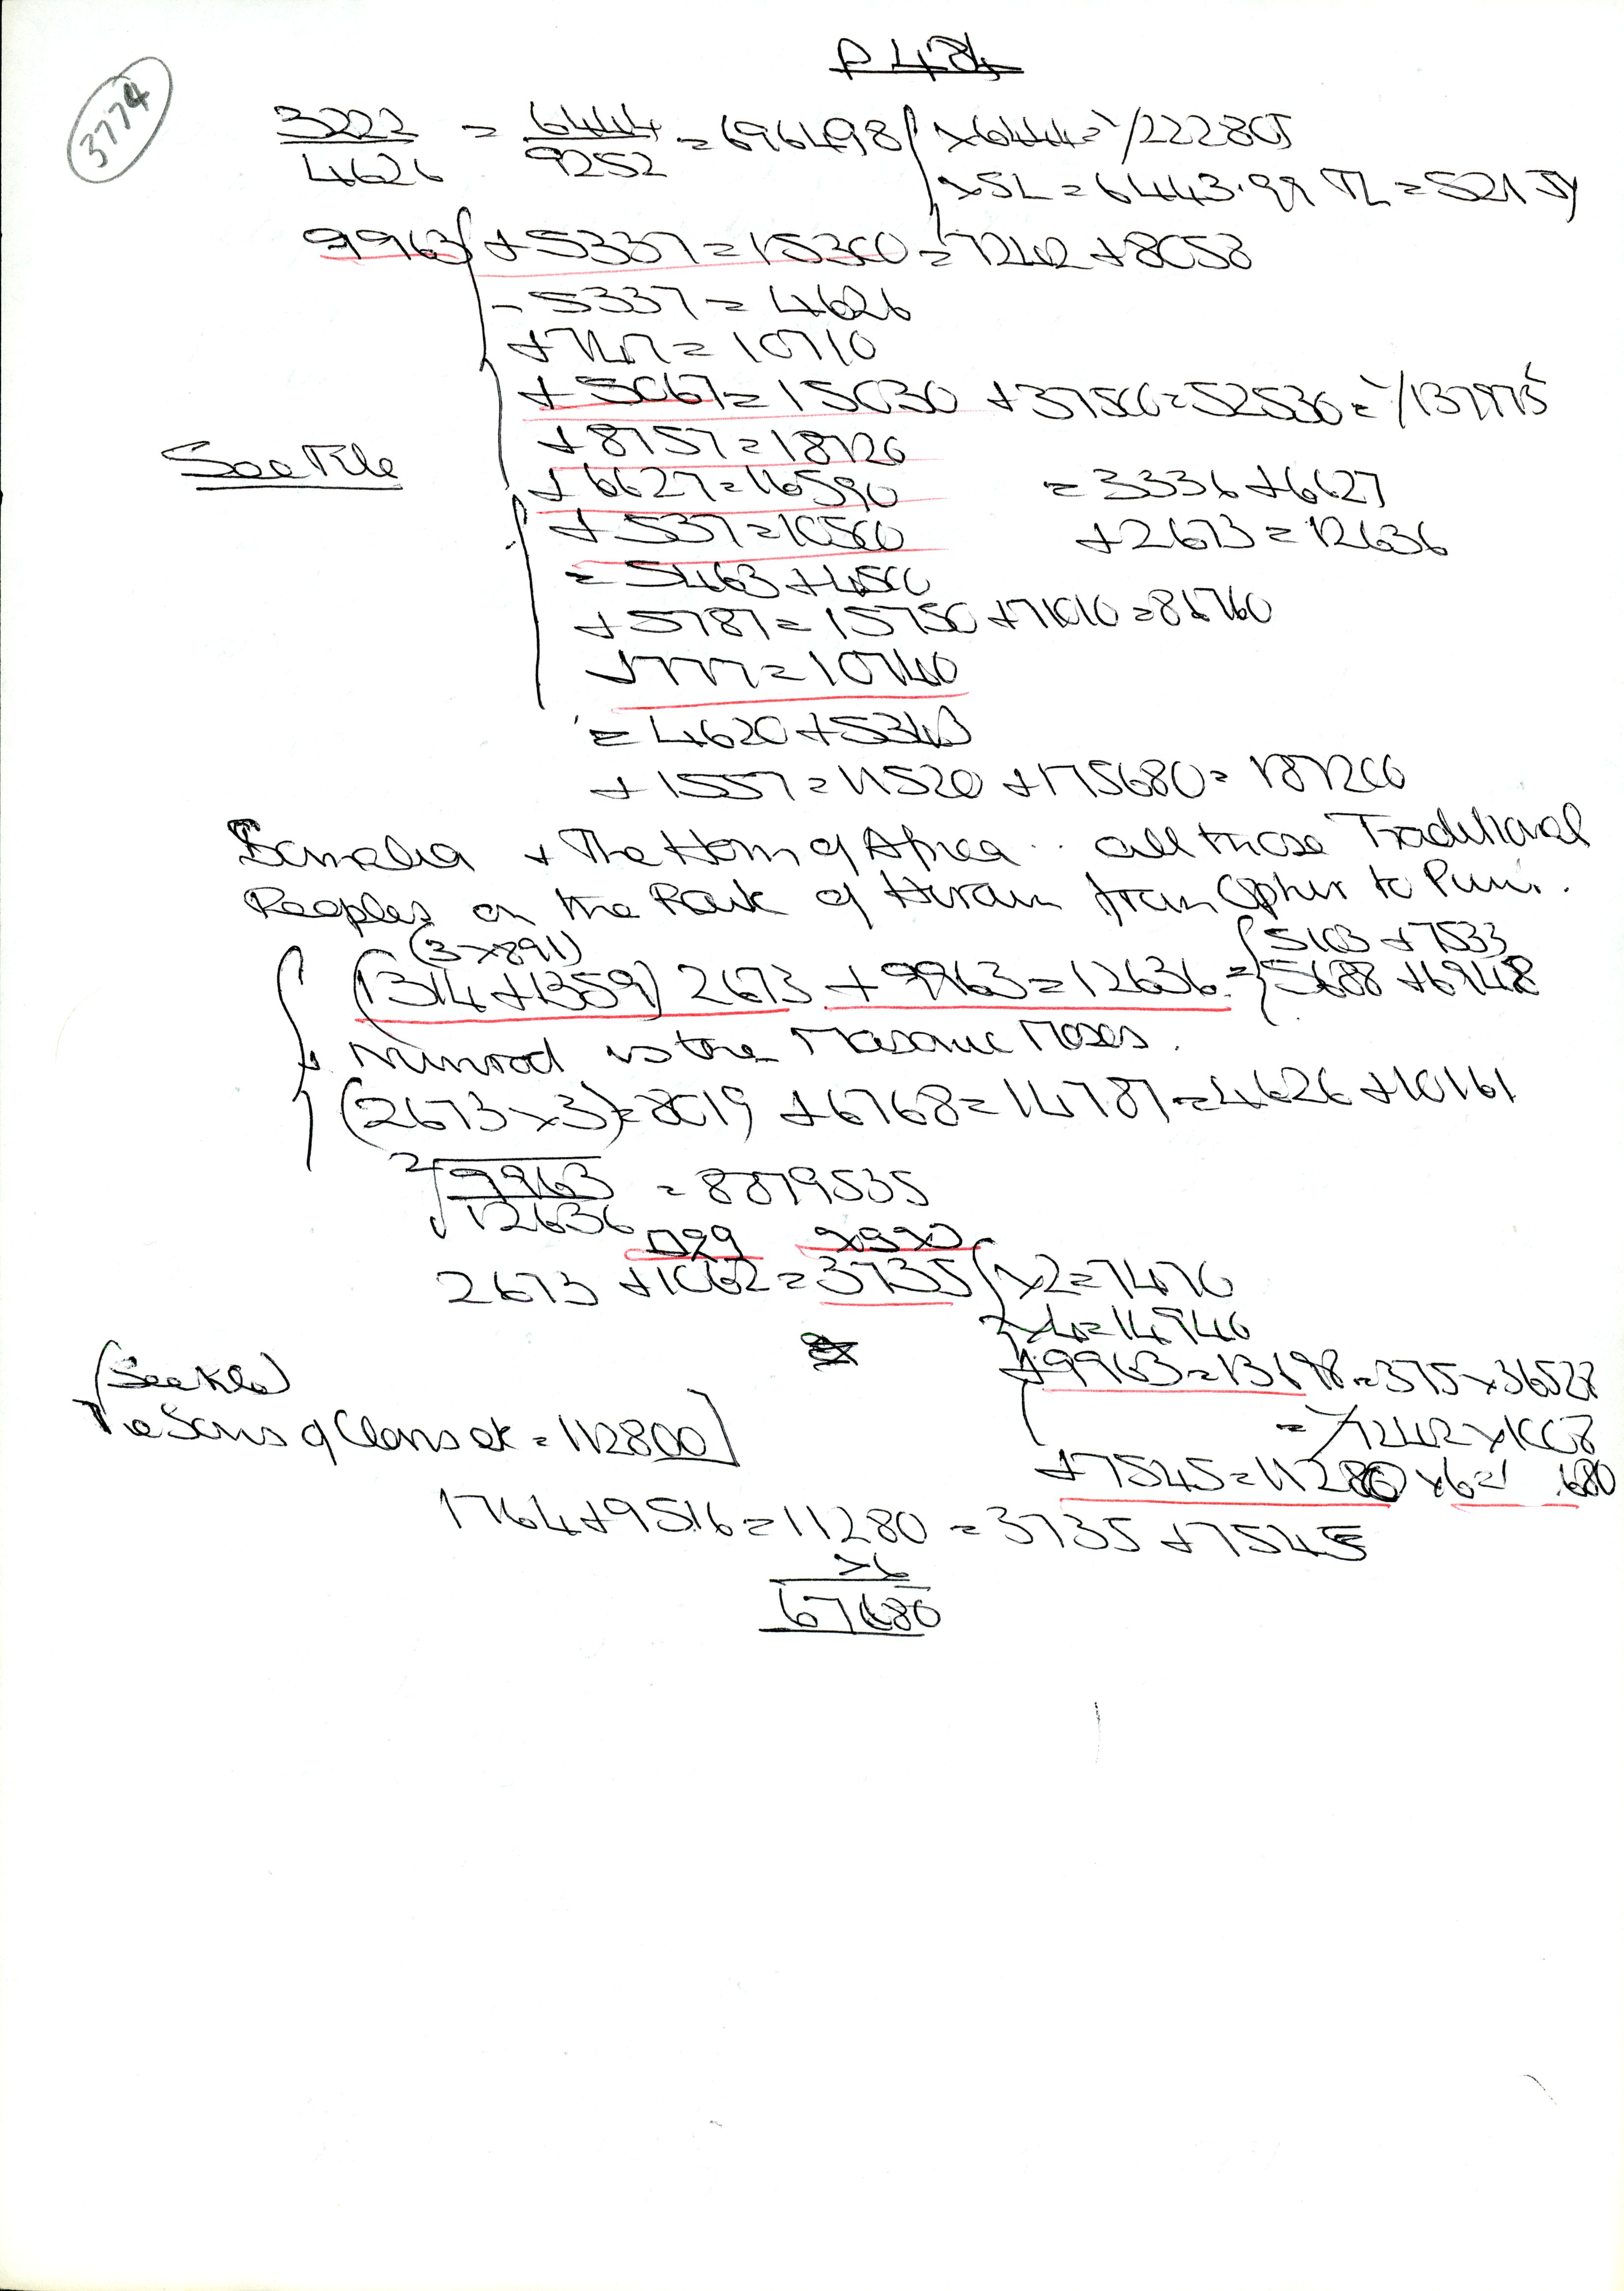 P 484
3774
3222/4626 = 6444/9252 = 696498 { x6444 = √222805
x5L = 6443.99 TL = 521 JY
9963 { + 5337 = 15300 = 7242 + 8058
- 5337 = 4626
+ 747 = 10710
+ 5067 = 15030 + 37500 = 52530 = √137975
+ 8757 = 18720
See File
+ 6627 = 16590 = 3336 + 6627
+ 537 = 10500 + 2673 = 12636
= 5463 + 4500
+ 5787 = 15750 + 71010 = 86760
+ 777 = 10740
= 4620 + 5343
+ 1557 = 11520 + 175680 = 187200
Somalia + The Horn of Africa .. all those Traditional
Peoples on the Route of Hiram from Ophir to Punt.
(3x891) { 5103 + 7533
(1314 + 1359) 2673 + 9963 = 12636 = 5688 + 6948
Nimrod is the Masonic Moses.
(2673 x 3) = 8019 + 6768 = 14787 = 4626 + 10161
2√9963/12636 = 8879535
2673 + 1062 = 3735 { x2 = 7470
x4 = 14940
+ 9963 = 13698 = 375 x 36528
= √7242 x 1008
(See File)
The Sons of Clans etc = 112800]
+ 7545 = 11280 x6 = 1 .680
1764 + 9516 = 11280 = 3735 + 7545
x6
67680